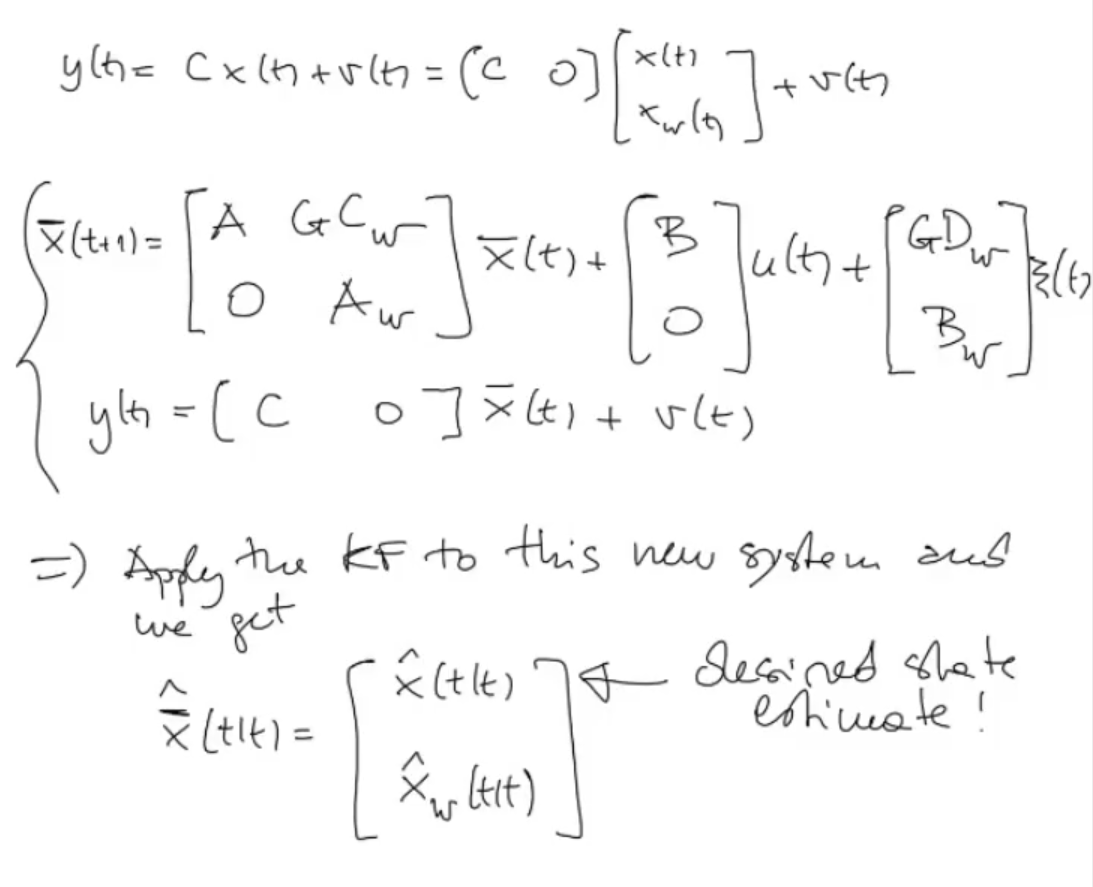 y(t) = Cx(t) + v(t) = [C 0] [x(t) x_w(t)] + v(t)
x̄(t+1) = [A GC_w 0 A_w] x̄(t) + [B 0] u(t) + [GD_w B_w] ξ(t)
y(t) = [C 0] x̄(t) + v(t)
=) Apply the KF to this new system and
we get
x̄̂(t|t) = [x̂(t|t) x̂_w(t|t)] ← desired state
estimate!